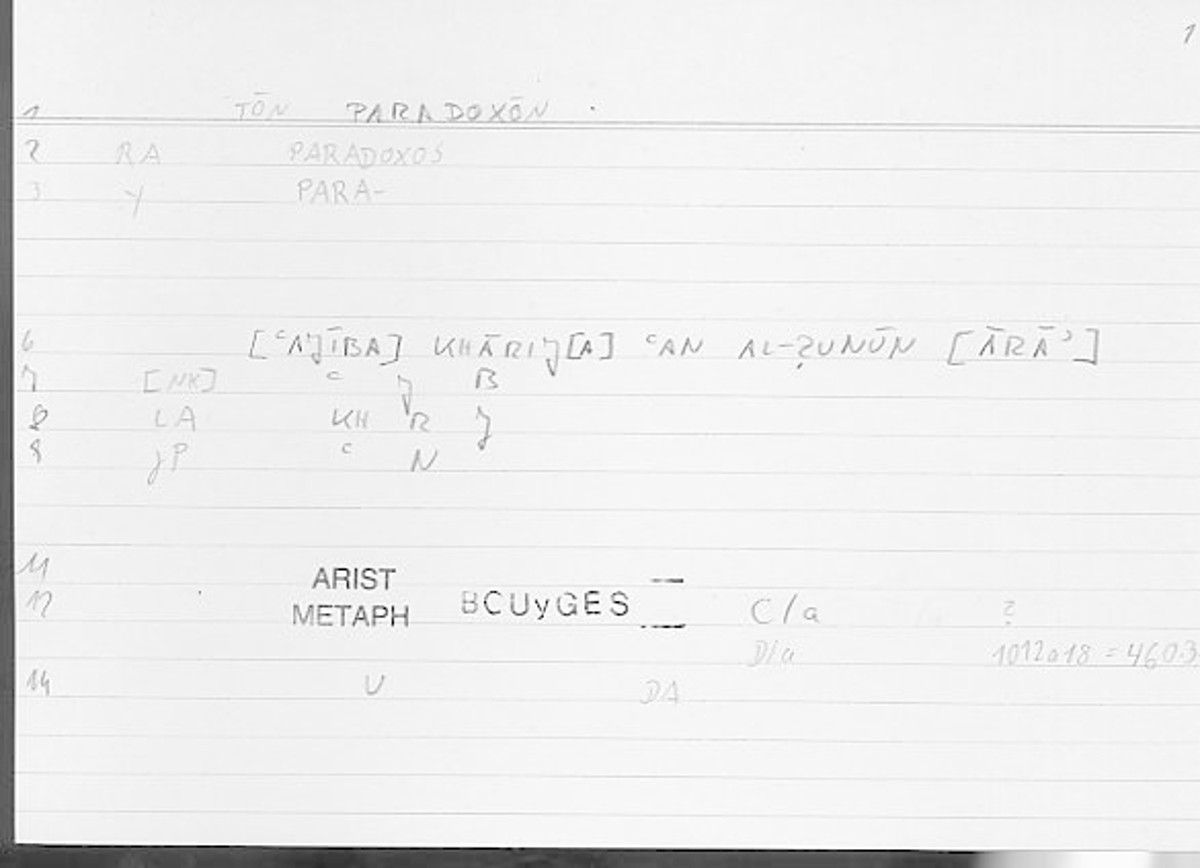 1
1 TŌN PARADOXŌN .
2 RA PARADOXOS
3 y PARA-
6 [ʿAJĪBA] KHĀRIJ[A] ʿAN AL-ẒUNŪN [ĀRĀʾ]
7 [NK] ʿ J B
8 LA KH R J
9 JP ʿ N
11 ARIST
12 METAPH BCUyGES C/a ?
D/a 1012a18 = 460.3
14 U DA